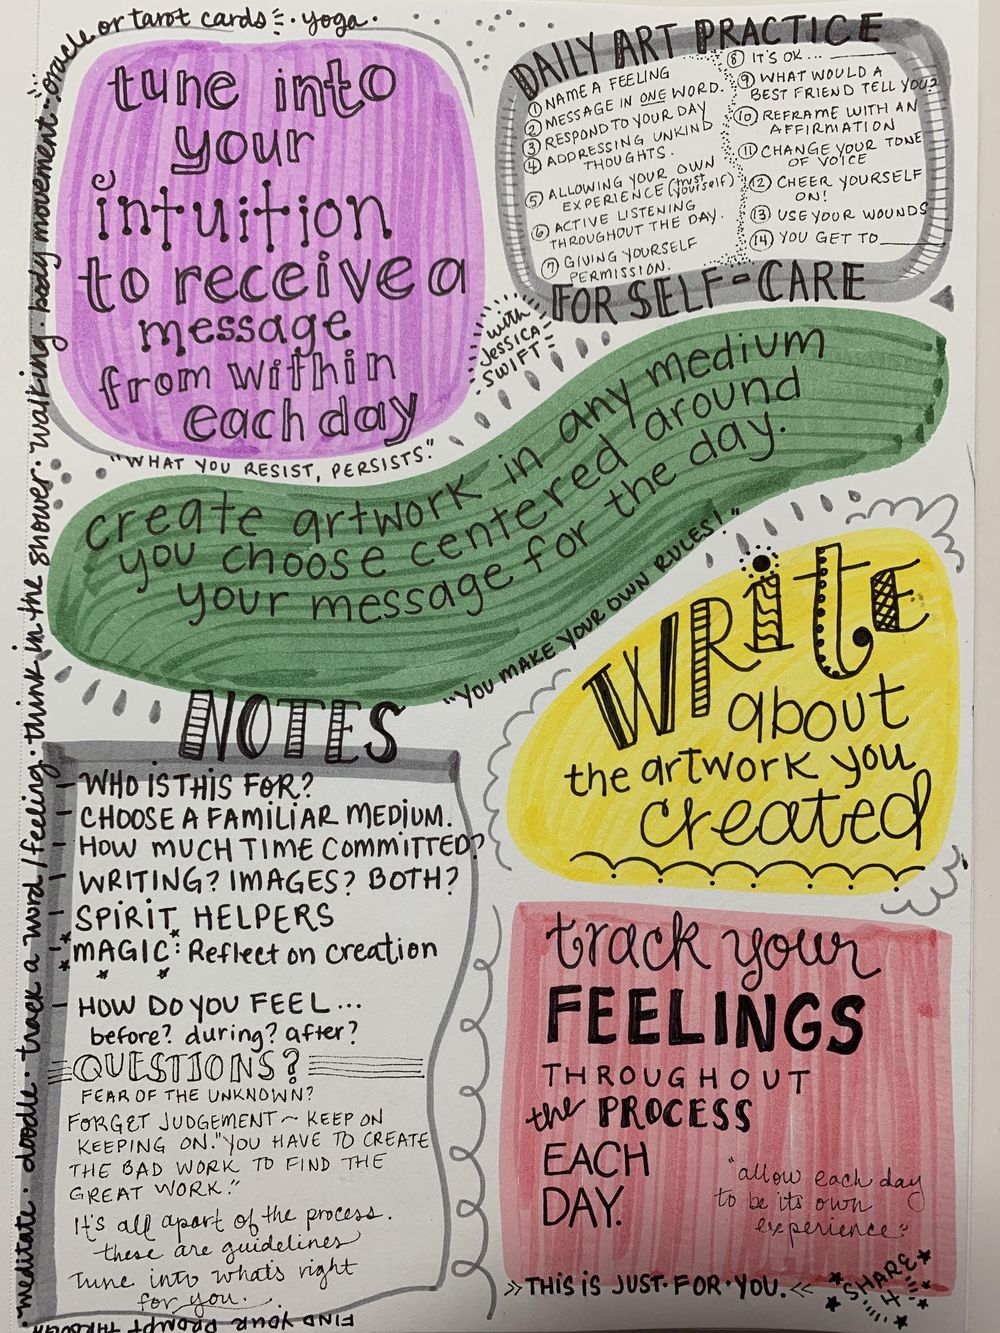 FIND YOUR PROMPT THROUGH
· meditate · doodle · track a word/feeling · think in the shower · walking · body movement · oracle or tarot cards · yoga ·
tune into
your
intuition
to receive a
message
from within
each day
"WHAT YOU RESIST, PERSISTS."
DAILY ART PRACTICE
① NAME A FEELING
② MESSAGE IN ONE WORD.
③ RESPOND TO YOUR DAY
④ ADDRESSING UNKIND
THOUGHTS.
⑤ ALLOWING YOUR OWN
EXPERIENCE (trust yourself)
⑥ ACTIVE LISTENING
THROUGHOUT THE DAY.
⑦ GIVING YOURSELF
PERMISSION.
⑧ IT'S OK... ______
⑨ WHAT WOULD A
BEST FRIEND TELL YOU?
⑩ REFRAME WITH AN
AFFIRMATION
⑪ CHANGE YOUR TONE
OF VOICE
⑫ CHEER YOURSELF
ON!
⑬ USE YOUR WOUNDS
⑭ YOU GET TO ______
FOR SELF-CARE
with
JESSICA
SWIFT
create artwork in any medium
you choose centered around
your message for the day.
"YOU MAKE YOUR OWN RULES!"
WRITE
about
the artwork you
created
NOTES
- WHO IS THIS FOR?
- CHOOSE A FAMILIAR MEDIUM.
- HOW MUCH TIME COMMITTED?
- WRITING? IMAGES? BOTH?
- SPIRIT HELPERS
MAGIC: Reflect on creation
- HOW DO YOU FEEL...
before? during? after?
QUESTIONS?
FEAR OF THE UNKNOWN?
FORGET JUDGEMENT ~ KEEP ON
KEEPING ON. "YOU HAVE TO CREATE
THE BAD WORK TO FIND THE
GREAT WORK."
It's all apart of the process.
these are guidelines
Tune into what's right
for you.
track your
FEELINGS
THROUGHOUT
the PROCESS
EACH
DAY.
"allow each day
to be its own
experience"
>> THIS IS JUST·FOR·YOU. <<
SHARE
IT